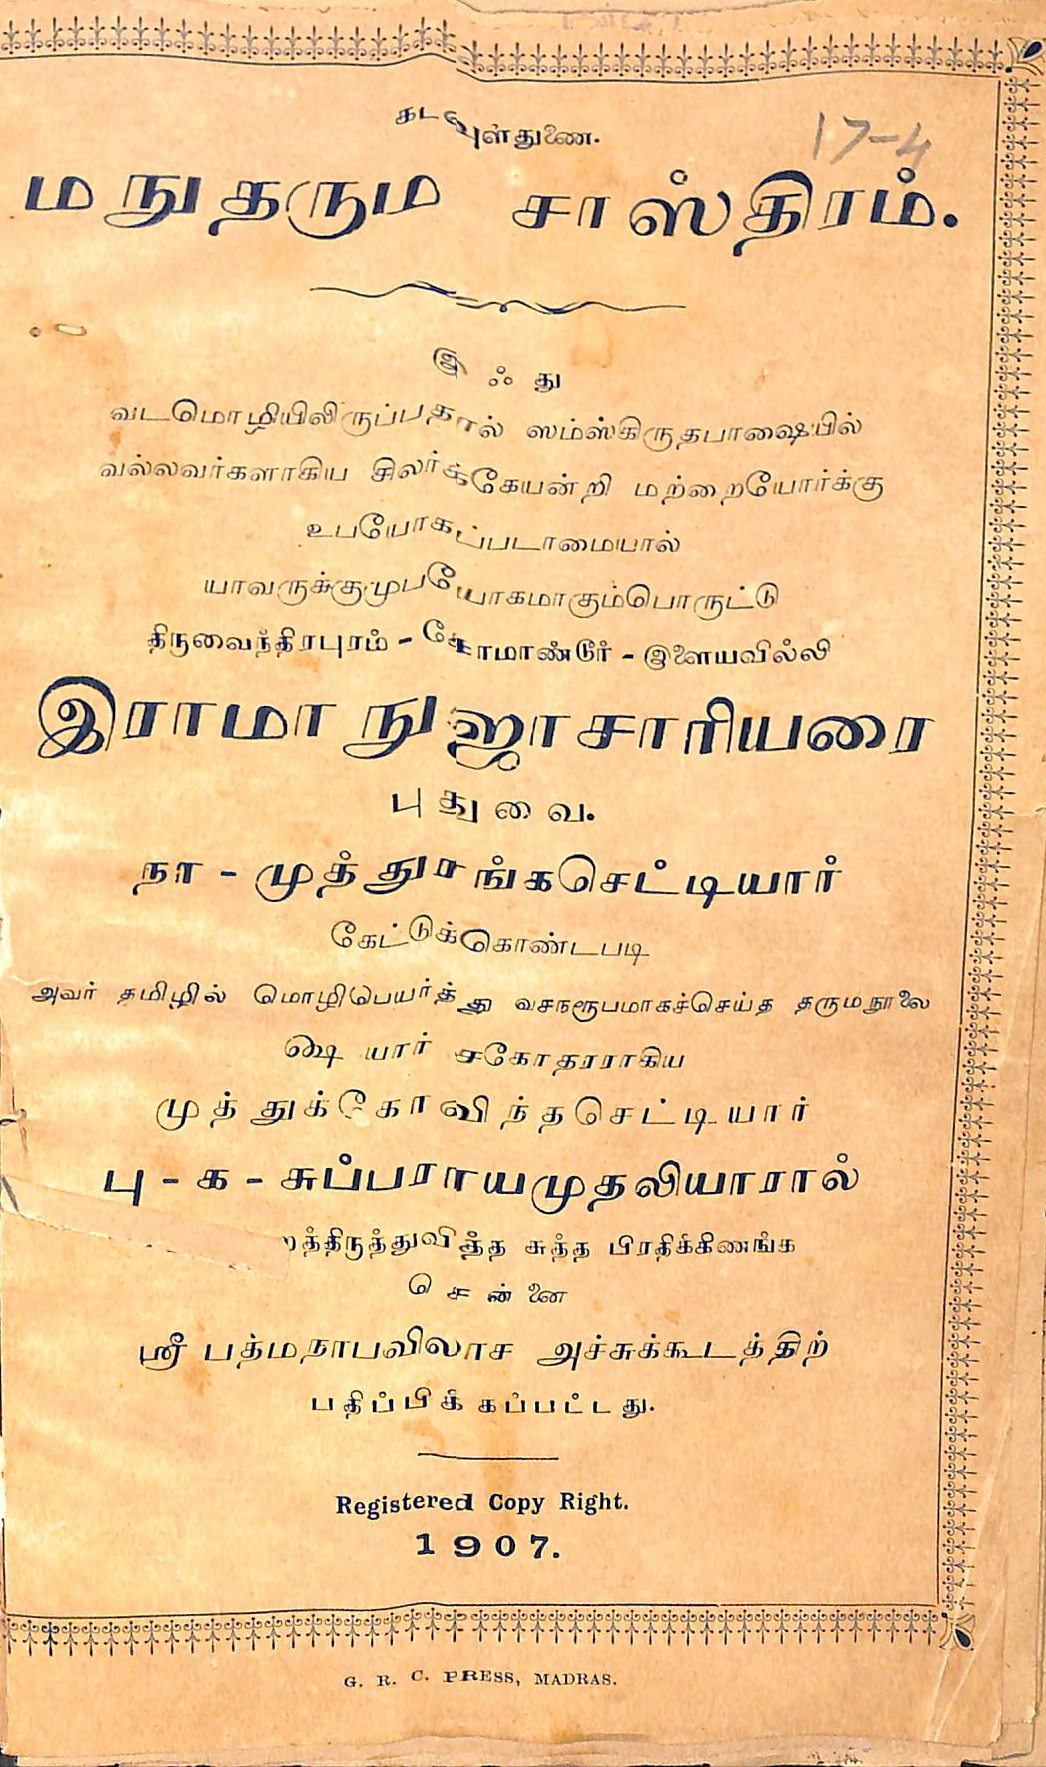 கடவுள்துணை.
17-4
மநுதரும சாஸ்திரம்.
இஃது
வடமொழியிலிருப்பதால் ஸம்ஸ்கிருதபாஷையில்
வல்லவர்களாகிய சிலர்க்கேயன்றி மற்றையோர்க்கு
உபயோகப்படாமையால்
யாவருக்குமுபயோகமாகும்பொருட்டு
திருவைந்திரபுரம் - கோமாண்டூர் - இளையவில்லி
இராமாநுஜாசாரியரை
புதுவை.
நா - முத்துரங்கசெட்டியார்
கேட்டுக்கொண்டபடி
அவர் தமிழில் மொழிபெயர்த்து வசநரூபமாகச்செய்த தருமநூலை
௸ யார் சகோதரராகிய
முத்துக்கோவிந்தசெட்டியார்
பு - க - சுப்பராயமுதலியாரால்
த்திருத்துவித்த சுத்த பிரதிக்கிணங்க
சென்னை
ஸ்ரீ பத்மநாபவிலாச அச்சுக்கூடத்திற்
பதிப்பிக்கப்பட்டது.
Registered Copy Right.
1907.
G. R. C. PRESS, MADRAS.